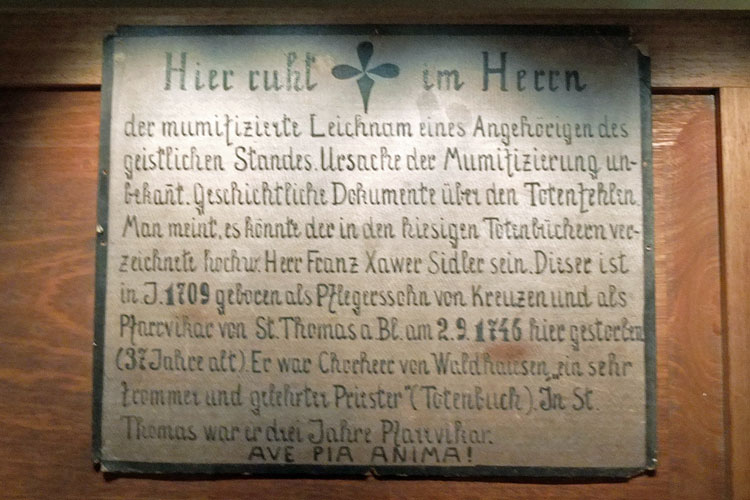 Hier ruht im Herrn
der mumifizierte Leichnam eines Angehörigen des
geistlichen Standes. Ursache der Mumifizierung un-
bekañt. Geschichtliche Dokumente über den Toten fehlen.
Man meint, es könnte der in den hiesigen Totenbüchern ver-
zeichnete hochw. Herr Franz Xawer Sidler sein. Dieser ist
in J. 1709 geboren als Pflegerssohn von Kreuzen und als
Pfarrvikar von St. Thomas a. Bl. am 2.9.1746 hier gestorben
(37 Jahre alt). Er war Chorherr von Waldhausen, „ein sehr
frommer und gelehrter Priester" (Totenbuch). In St.
Thomas war er drei Jahre Pfarrvikar.
AVE PIA ANIMA!